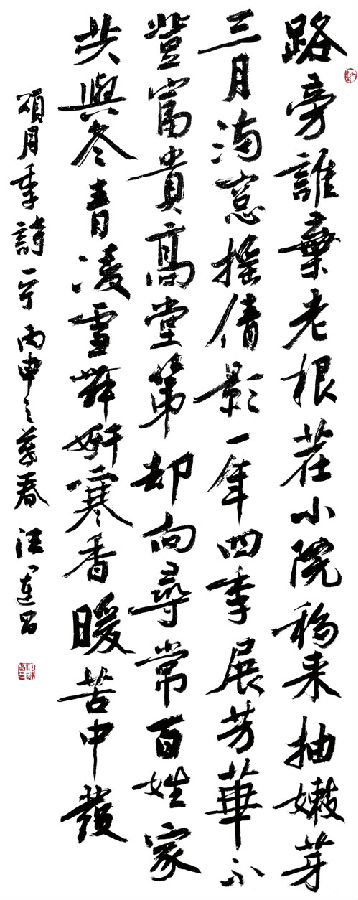 路旁誰棄老根茬小院移来抽嫩芽
三月满窓摇倩影一年四季展芳華不
登富貴高堂第却向尋常百姓家
共與冬青凌雪舞妍寒香暖苦中發
頌月季詩一 丙申之暮春 汪